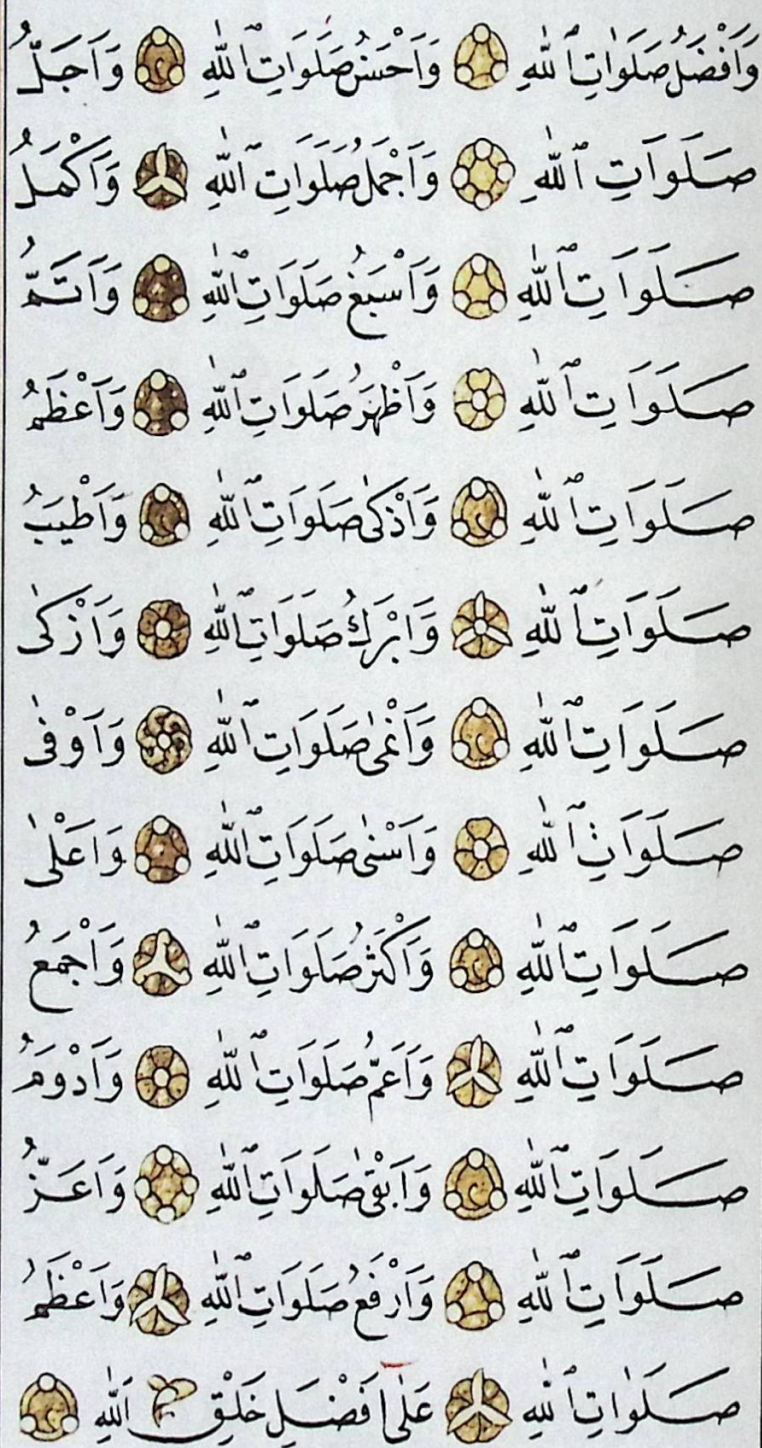 وَاَفْضَلُ صَلَوٰاتِ ٱللّٰهِ وَاَحْسَنُ صَلَوَاتِ ٱللّٰهِ وَاَجَلُّ
صَلَوَاتِ ٱللّٰهِ وَاَجْمَلُ صَلَوَاتِ ٱللّٰهِ وَاَكْمَلُ
صَلَوَاتِ ٱللّٰهِ وَاَسْبَغُ صَلَوَاتِ ٱللّٰهِ وَاَتَمُّ
صَلَوَاتِ ٱللّٰهِ وَاَظْهَرُ صَلَوَاتِ ٱللّٰهِ وَاَعْظَمُ
صَلَوَاتِ ٱللّٰهِ وَاَذْكٰى صَلَوَاتِ ٱللّٰهِ وَاَطْيَبُ
صَلَوَاتِ ٱللّٰهِ وَاَبْرَكُ صَلَوَاتِ ٱللّٰهِ وَاَزْكٰى
صَلَوَاتِ ٱللّٰهِ وَاَنْمٰى صَلَوَاتِ ٱللّٰهِ وَاَوْفٰى
صَلَوَاتِ ٱللّٰهِ وَاَسْنٰى صَلَوَاتِ ٱللّٰهِ وَاَعْلٰى
صَلَوَاتِ ٱللّٰهِ وَاَكْثَرُ صَلَوَاتِ ٱللّٰهِ وَاَجْمَعُ
صَلَوَاتِ ٱللّٰهِ وَاَعَمُّ صَلَوَاتِ ٱللّٰهِ وَاَدْوَمُ
صَلَوَاتِ ٱللّٰهِ وَاَبْقٰى صَلَوَاتِ ٱللّٰهِ وَاَعَزُّ
صَلَوَاتِ ٱللّٰهِ وَاَرْفَعُ صَلَوَاتِ ٱللّٰهِ وَاَعْظَمُ
صَلَوٰاتِ ٱللّٰهِ عَلٰى اَفْضَلِ خَلْقِ ٱللّٰهِ